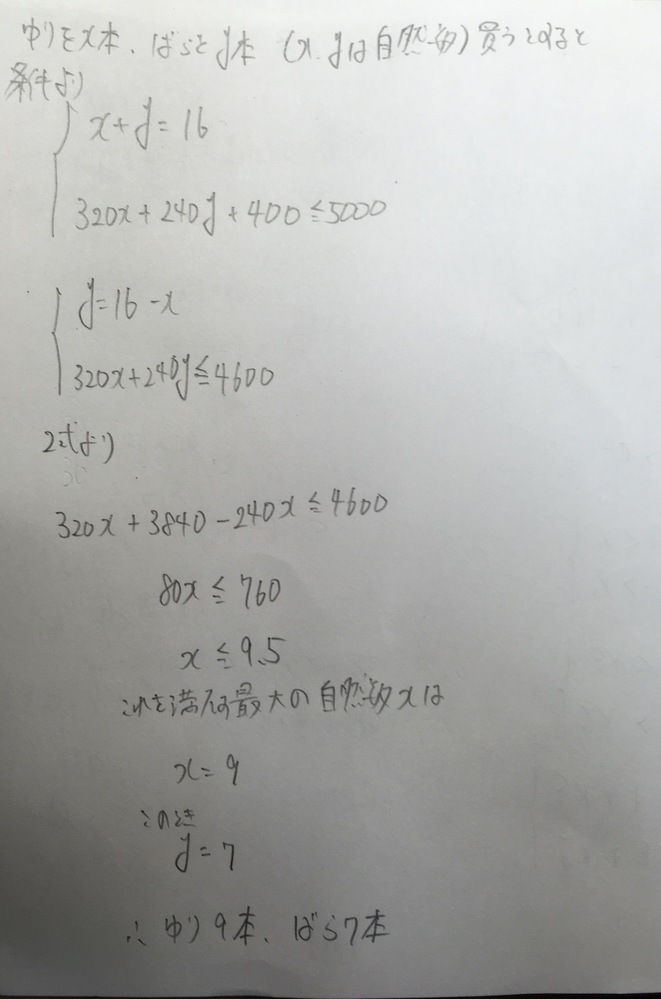 ゆりをx本、ばらをy本 (x, yは自然数) 買うとすると
条件より
x+y=16
320x+240y+400≦5000
y=16-x
320x+240y≦4600
2式より
320x+3840-240x≦4600
80x≦760
x≦9.5
これを満たす最大の自然数xは
x=9
このとき
y=7
∴ ゆり9本、ばら7本